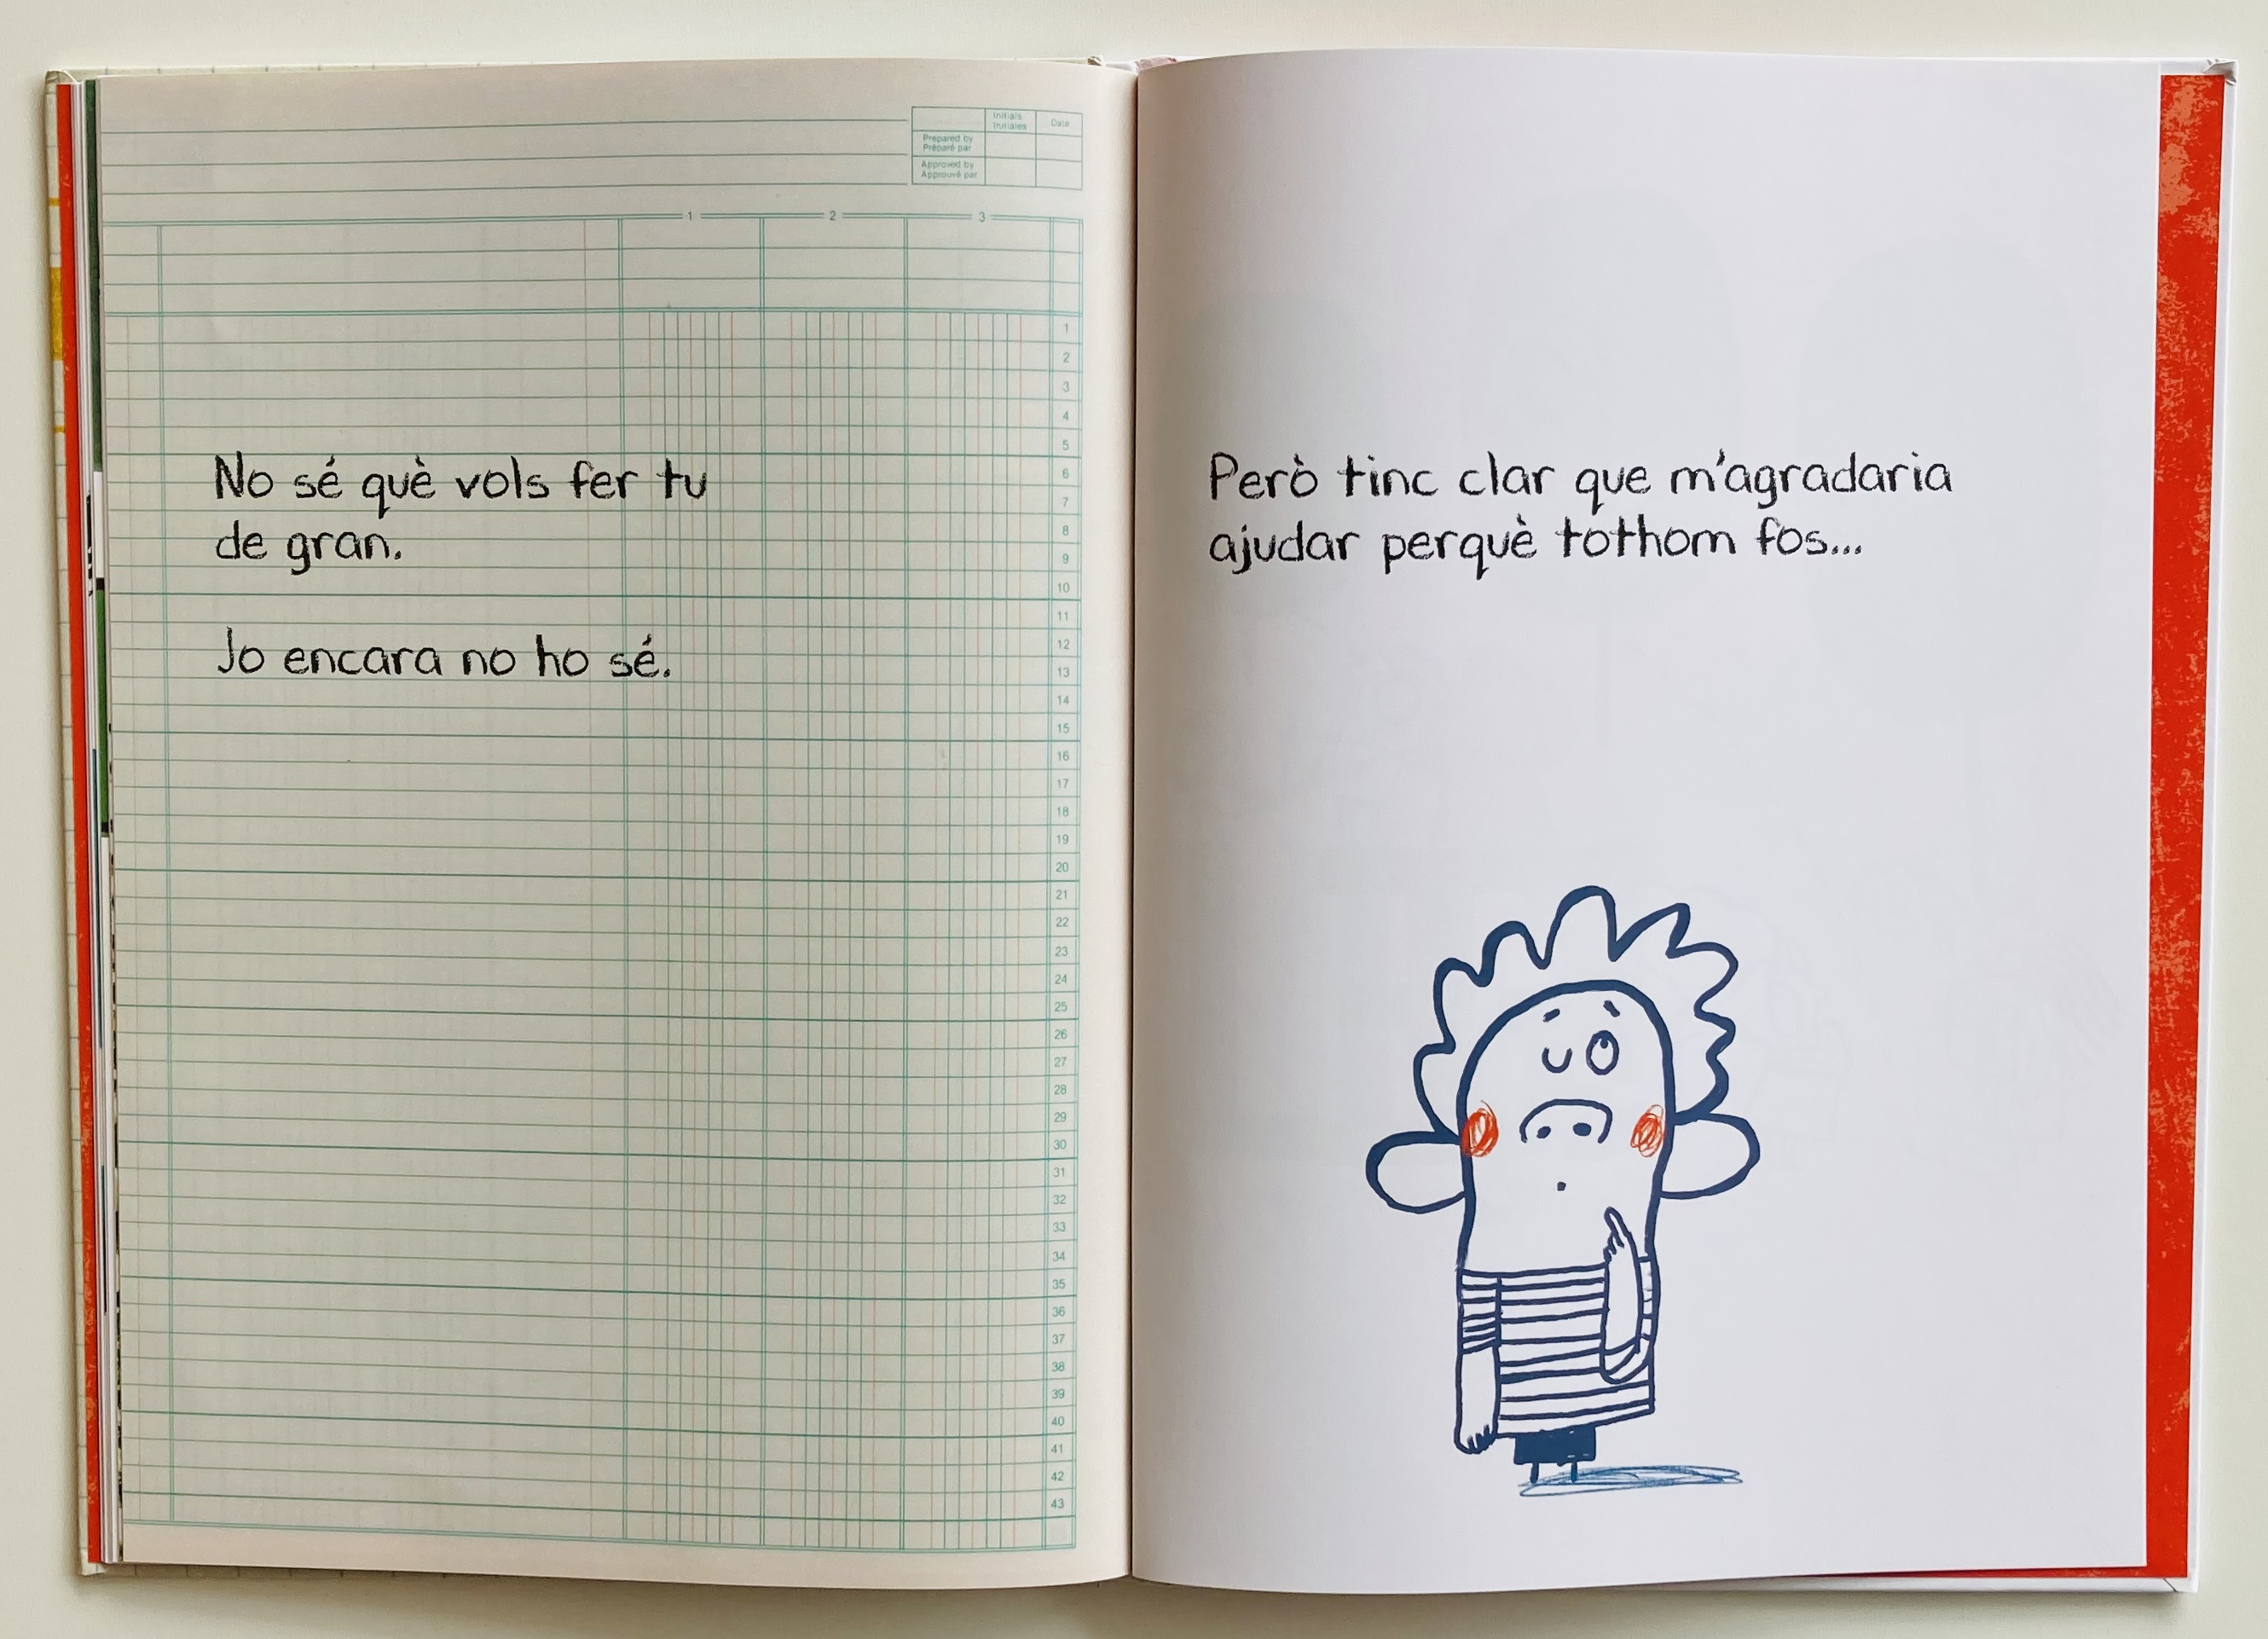 Initials Date
Initiales
Prepared by
Préparé par
Approved by
Approuvé par
1 2 3
1
2
3
4
5
6
7
8
9
10
11
12
13
14
15
16
17
18
19
20
21
22
23
24
25
26
27
28
29
30
31
32
33
34
35
36
37
38
39
40
41
42
43
No sé què vols fer tu
de gran.
Jo encara no ho sé.
Però tinc clar que m'agradaria
ajudar perquè tothom fos...